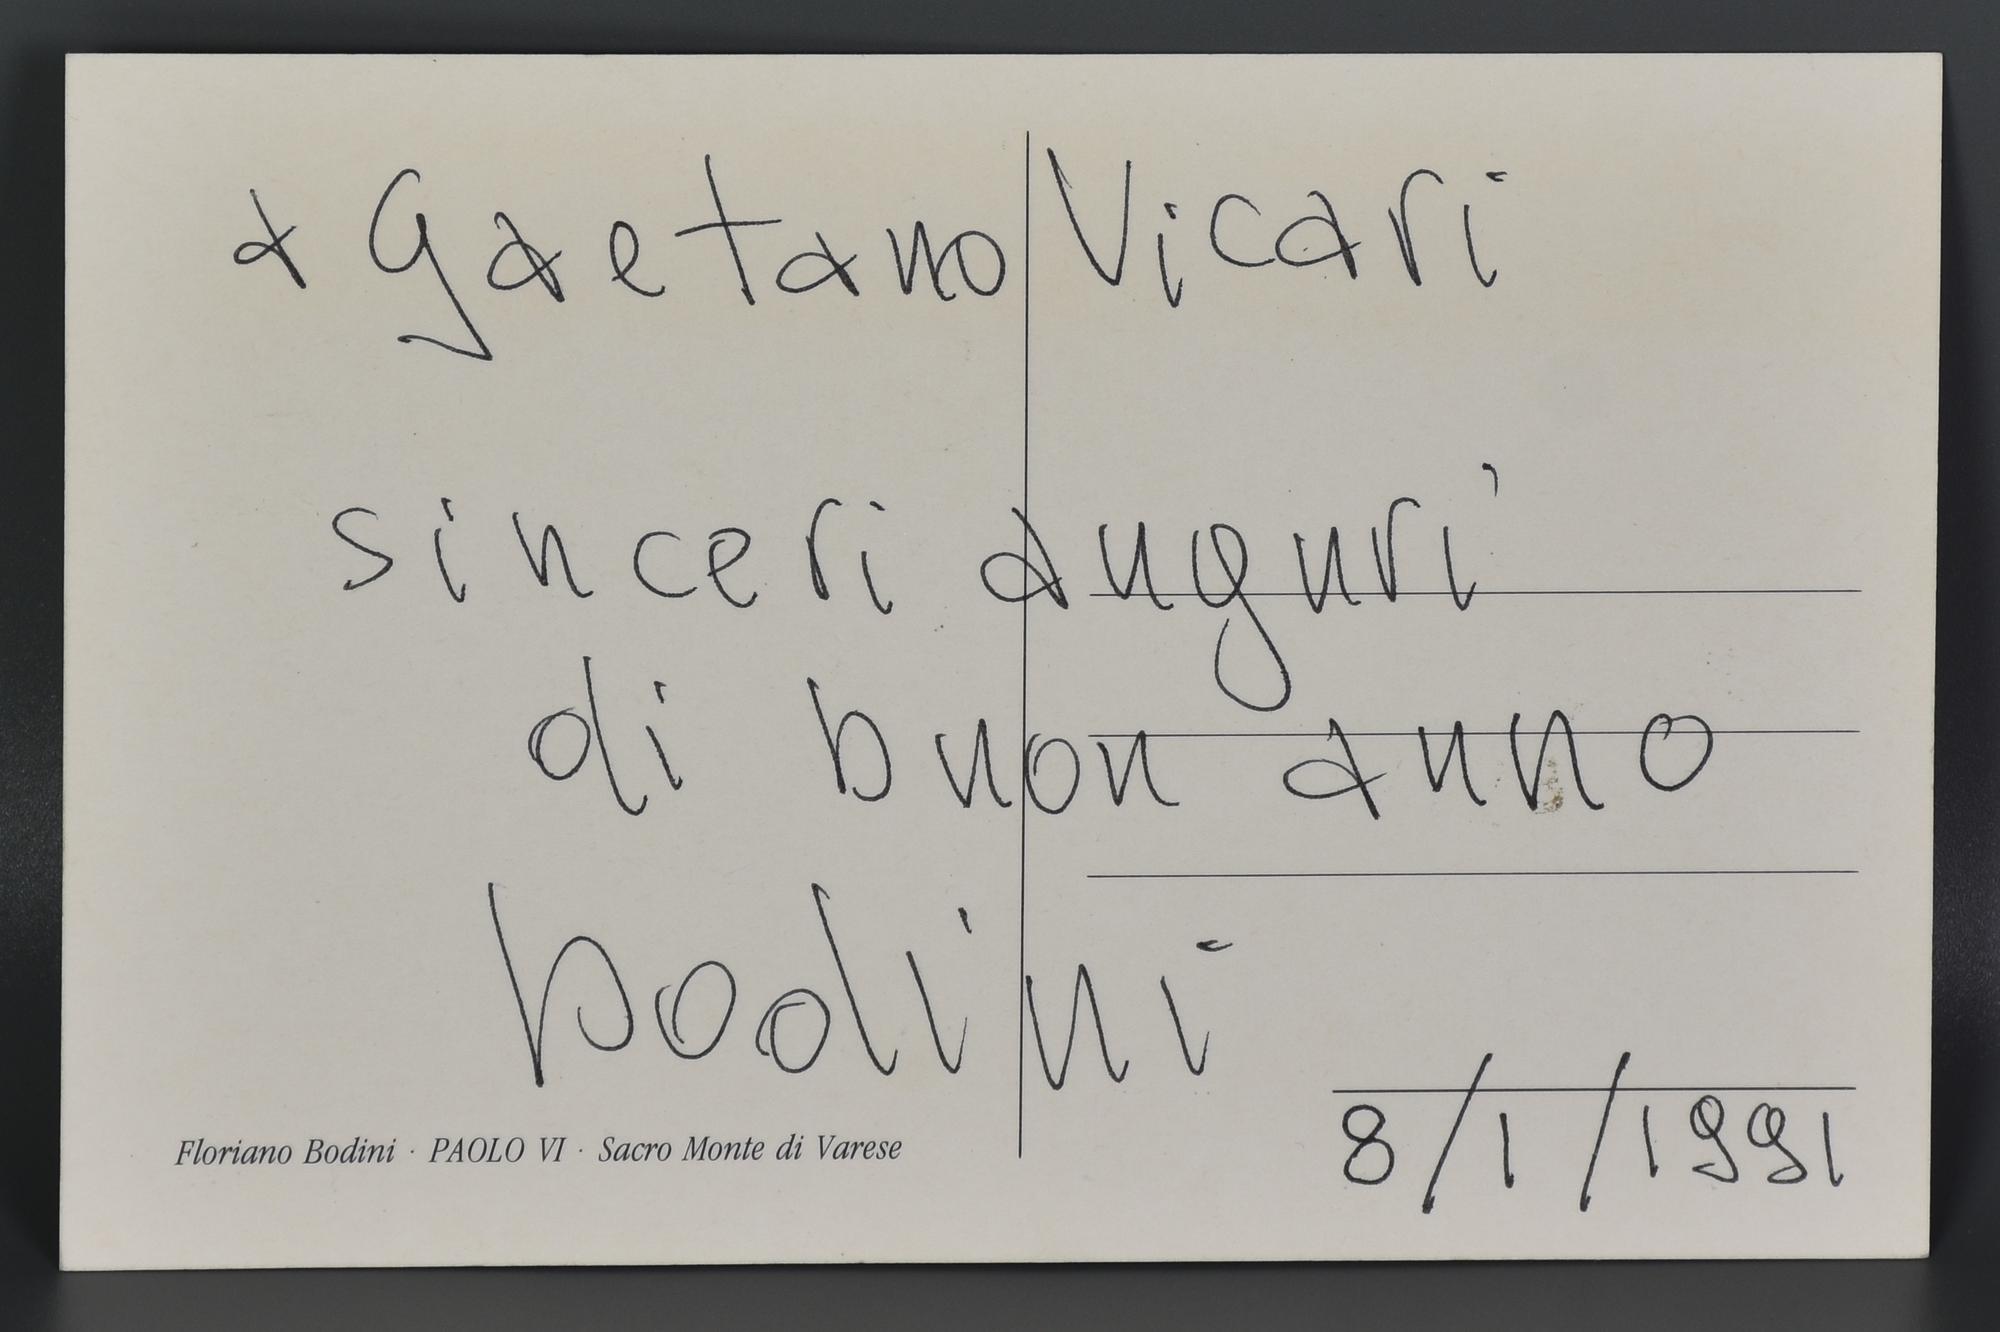 a Gaetano Vicari
sinceri auguri
di buon anno
bodini
Floriano Bodini · PAOLO VI · Sacro Monte di Varese
8/1/1991